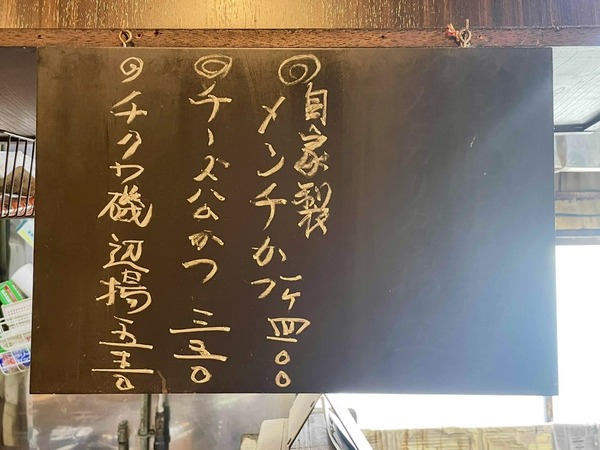 ◎自家製
メンチかつ 一ヶ 四〇〇
◎チーズハムかつ 三五〇
◎チクワ磯辺揚 五五〇